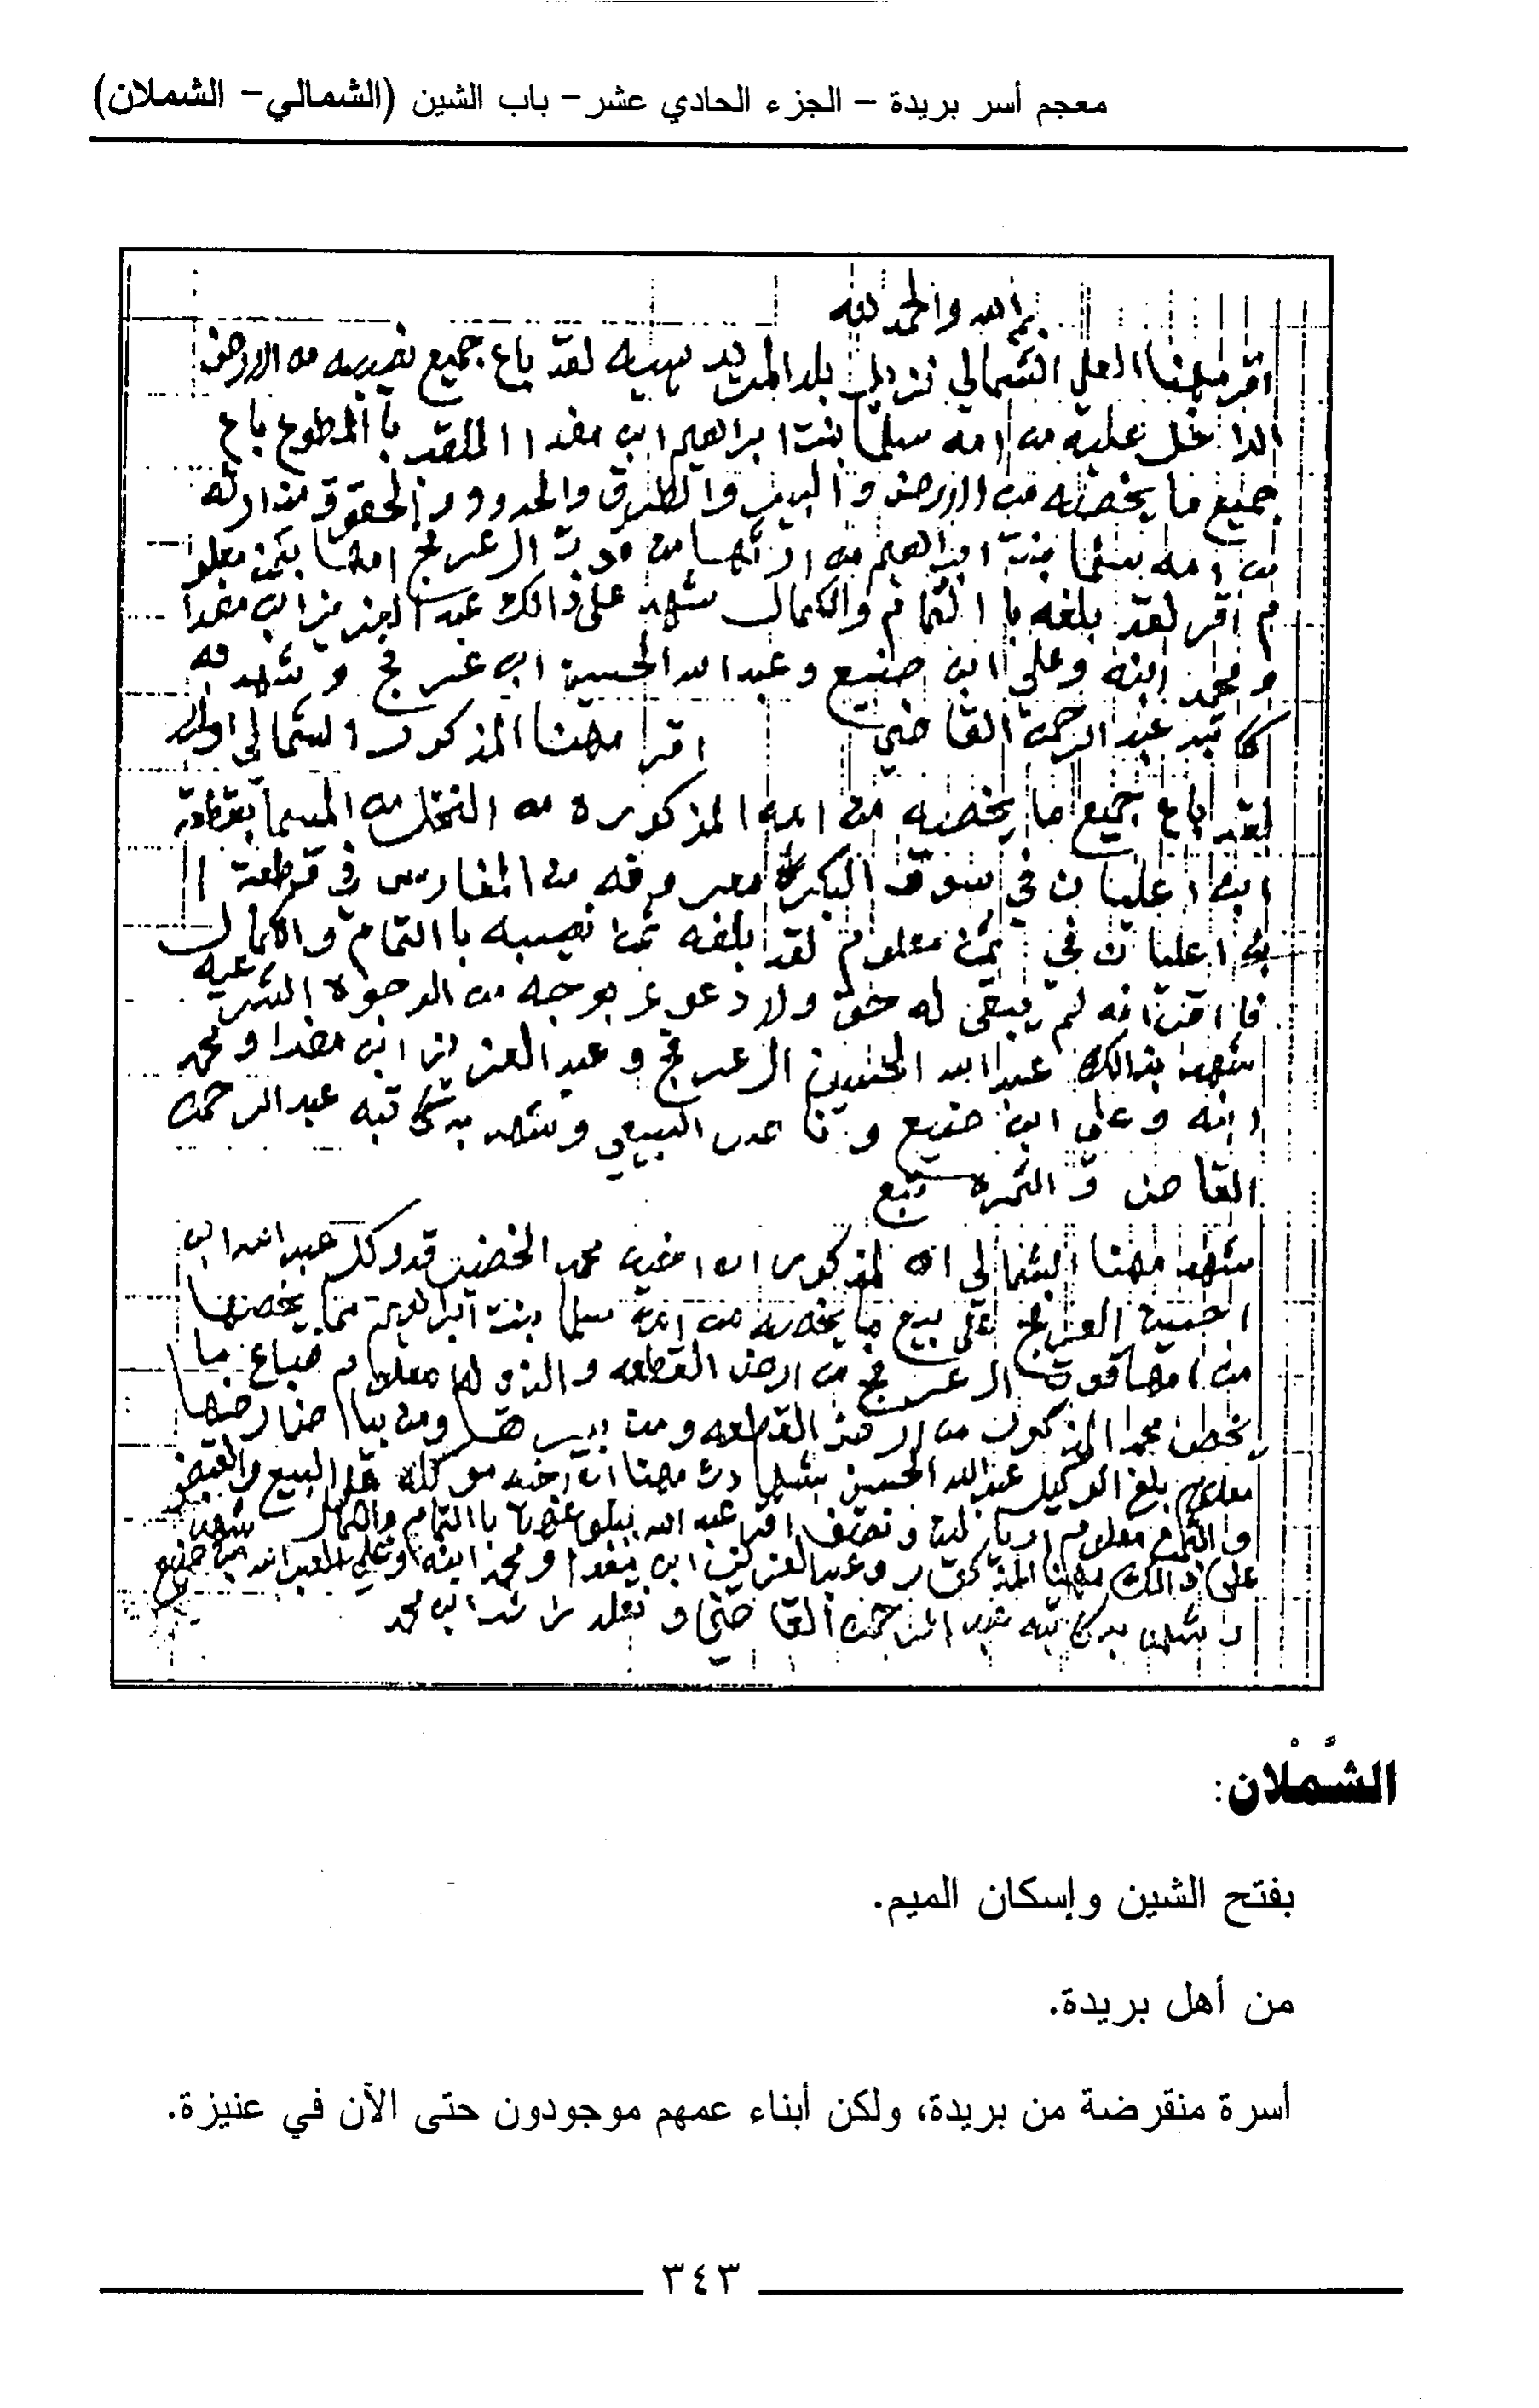 معجم أسر بريدة – الجزء الحادي عشر – باب الشين (الشمالي – الشملان)
والحمد لله
اقر مهنا العلي الشمالي نزيل بلد لقد باع جميع نصيبه من الارض
الداخل عليه من امه سلما بنت ابراهيم ابن مغدا باع
جميع ما يخصه من الارض و البير والطرق والحدود والحقوق
من امه سلما بنت ابراهيم من ارثها من العرفج امها بثمن معلو
م اقر لقد بلغه با التمام والكمال شهد على ذالك عبد العزيز ابن مغدا
و محمد ابنه وعلي ابن صنيع وعبد الله الحسين ابن عرفج و شهد به
كاتبه عبد الرحمن القاضي اقرا مهنا المذكور الشمالي
لقد اباع جميع ما يخصه من امه المذكوره من النخل من المسما بقطعة
ابن اعليان في سوق معروفه من المغارس في قطعة ا
بن اعليان في ثمن معلوم لقد بلغه ثمن نصيبه با التمام والكمال
فا اقر انه لم يبقى له حق ولا دعوى بوجه من الوجوه الشرعيه
شهد بذالك عبد الله الحسين العرفج و عبد العزيز ابن مغدا و محمد
ابنه وعلي ابن صنيع و السبيعي وشهد به كاتبه عبد الرحمن
القاضي و الثمره تبع
شهد مهنا الشمالي المذكور ان اخيه محمد الخضير قد وكل عبد الله ابن
احسين العرفج على بيع ما يخصه من امه سلما بنت ابراهيم مما يخصها
من امها قوت العرفج من ارض القطعه معلوم فباع ما
يخص محمد المذكور من ارض القطعه ومن بير
معلوم بلغ الوكيل عبد الله الحسين مهنا ان اخيه موكله على البيع والقبض
والثمن معلوم ونصف اقر عبد الله با التمام والكمال شهد
على ذالك مهنا المذكور وعبد العزيز ابن مغدا و محمد ابنه وعلي العبد الله ابن صنيع
وشهد به كاتبه عبد الرحمن القاضي و نقله راشد ابن محمد
الشَّمْلان:
بفتح الشين وإسكان الميم.
من أهل بريدة.
أسرة منقرضة من بريدة، ولكن أبناء عمهم موجودون حتى الآن في عنيزة.
٣٤٣